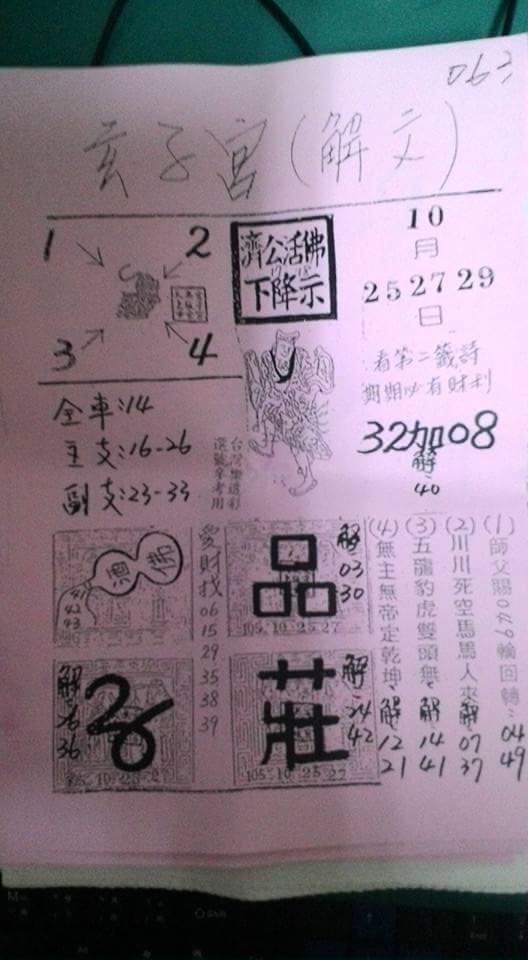 063
玄子宮(解文)
1
2
3
4
濟公活佛
下降示
10
月
25 27 29
日
看第二籤詩
期期必有財利
32加08
解:40
全車:14
主支:16-26
副支:23-33
台灣樂透彩
選號參考用
愛財找
06
15
29
35
38
39
品
解
03
30
105.10.25.27
解
26
36
26
莊
解
24
42
105.10.25.27
(1)師父賜049輪回轉:04 49
(2)川川死空馬馬人來解:07 37
(3)五龍豹虎雙頭無、解:14 41
(4)無主無帝定乾坤、解:12 21